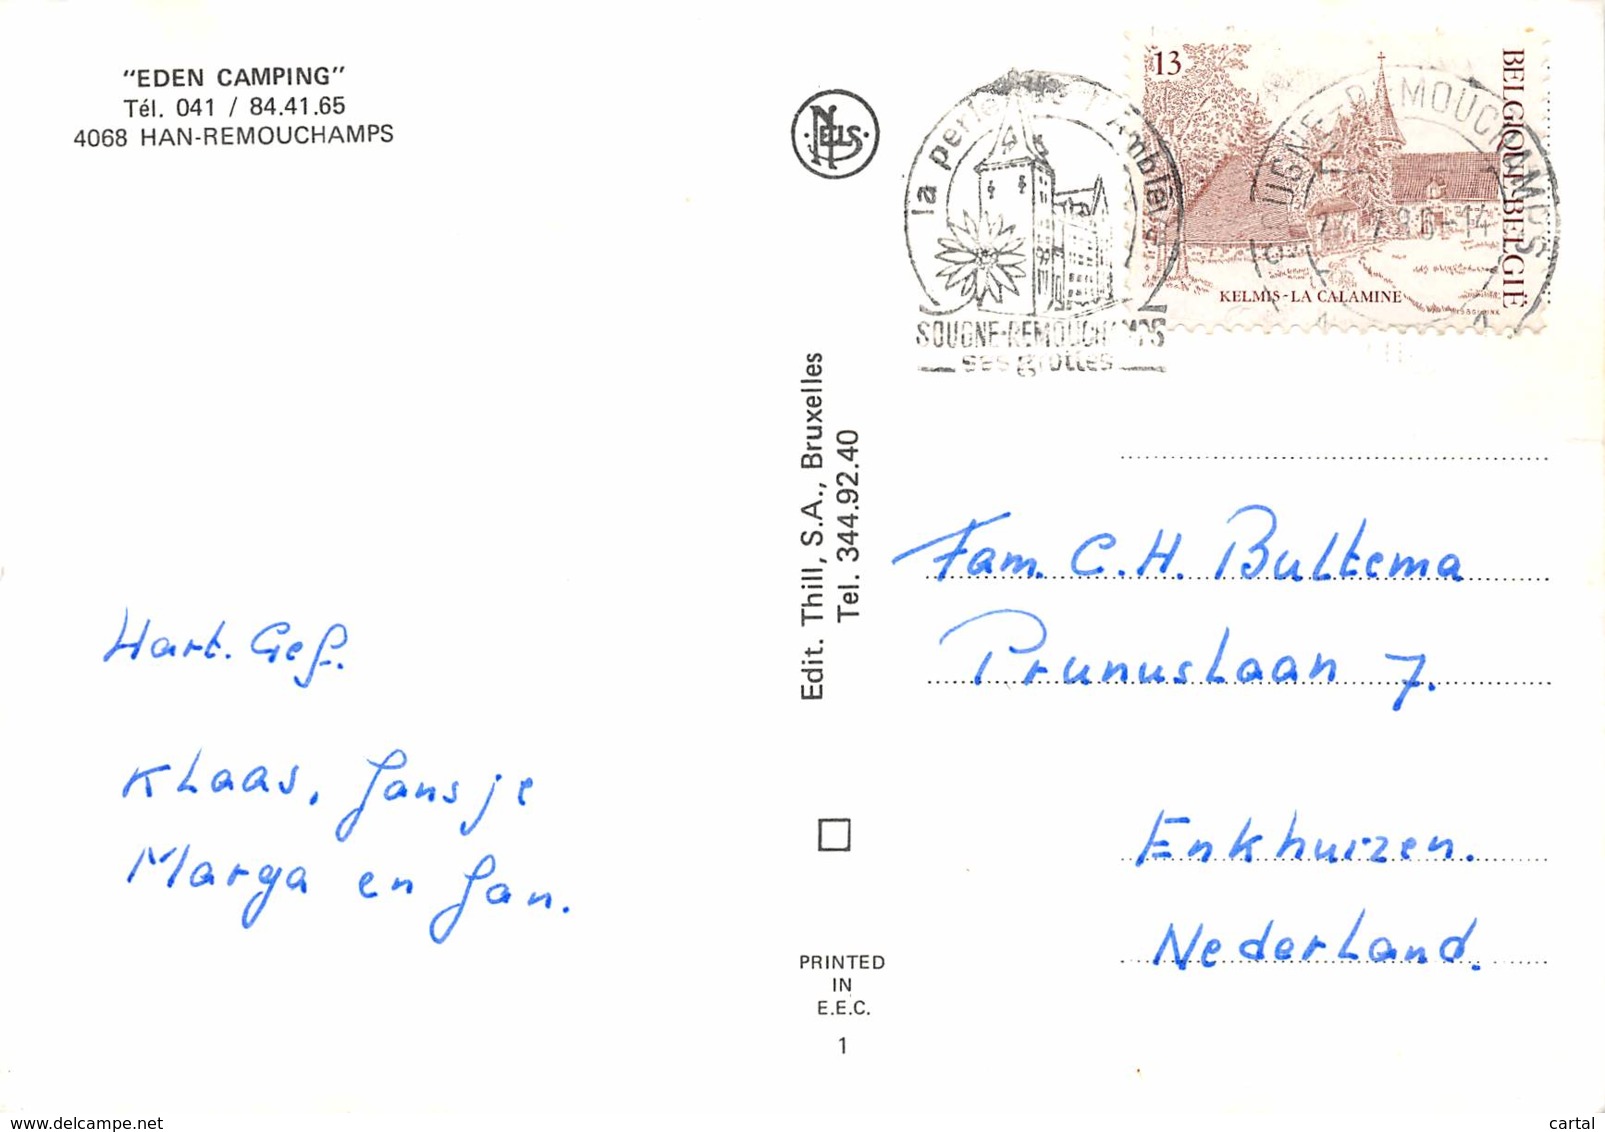 "EDEN CAMPING"
Tél. 041 / 84.41.65
4068 HAN-REMOUCHAMPS
NELS
la perle de l'Amblève
SOUGNE-REMOUCHAMPS
ses grottes
13
BELGIQUE·BELGIË
KELMIS-LA CALAMINE
SOUGNE-REMOUCHAMPS
7.86-14
Edit. Thill, S.A., Bruxelles
Tel. 344.92.40
Fam. C.H. Bultema
Prunuslaan 7.
Enkhuizen.
Nederland.
Hart. Gef.
Klaas, Jansje
Marga en Jan.
PRINTED
IN
E.E.C.
1
https://www.delcampe.net
cartal